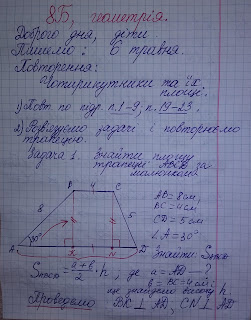 8Б, геометрія.
Доброго дня, діти
Пишемо: 6 травня.
Повторення:
Чотирикутники та їх
площі.
1) Повт по підр. п.1-9, п.19-23.
2) Розв'язуємо задачі і повторюємо
трапецію.
Задача 1. Знайти площу
трапеції ABCD за
малюнком
B 4 C
8 5
30°
A K N D
AB = 8см,
BC = 4см
CD = 5см
∠A = 30°
Знайти S
S = a+b/2 · h, де a = AD — ?
b = BC = 4см
ще знайдемо висоту h
Проводимо BK ⊥ AD, CN ⊥ AD